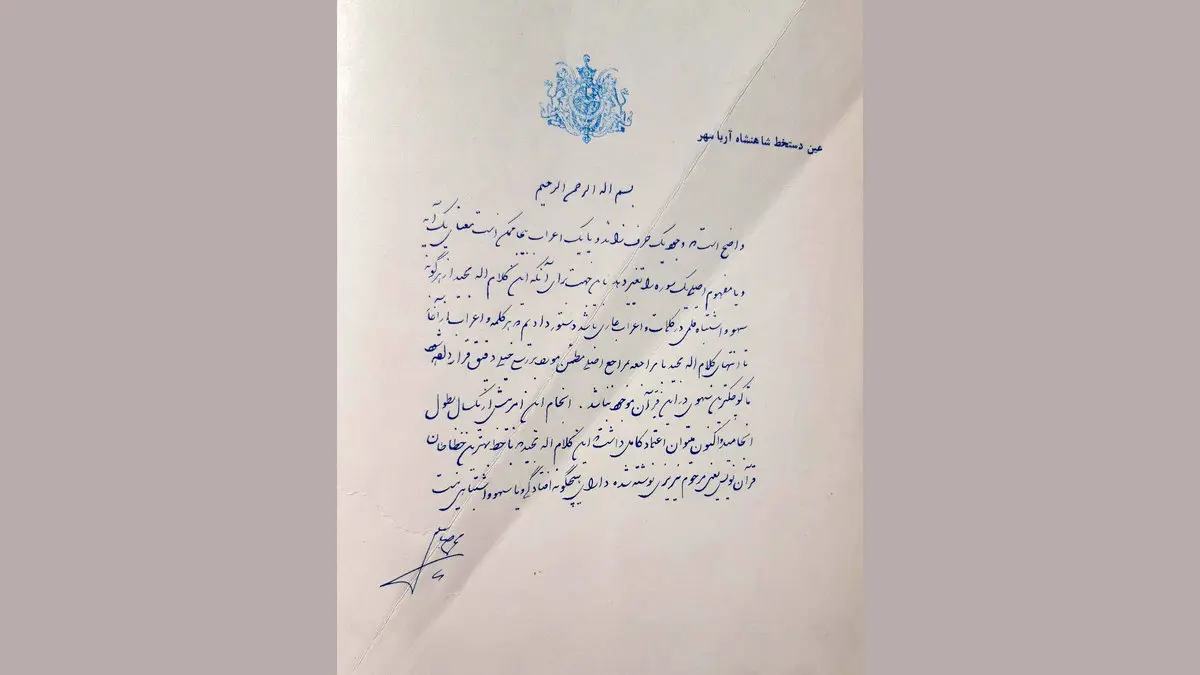 عین دستخط شاهنشاه آریا مهر
بسم اله الرحمن الرحیم
واضح است که وجود یک حرف زائد و یا یک اعراب بیجا ممکن است معنای یک آیه
و یا مفهوم اصلی یک سوره را تغییر دهد بدین جهت برای آنکه این کلام اله مجید از هر گونه
سهو و اشتباه قلمی در کلمات و اعراب عاری باشد دستور دادیم که هر کلمه و اعراب از آغاز
تا انتهای کلام اله مجید با مراجعه بمراجع اصلی مطمئن مورد بررسی خیلی دقیق قرار داده شود
تا کوچکترین سهوی در این قرآن موجود نباشد . انجام این امر بیش از یکسال بطول
انجامید و اکنون میتوان اعتماد کامل داشت که این کلام اله مجید که با خط بهترین خطاطان
قرآن نویس یعنی مرحوم نیریزی نوشته شده دارای هیچگونه افتادگی و یا سهو و اشتباهی نیست